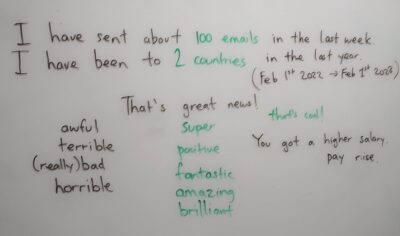 I have sent about 100 emails in the last week.
I have been to 2 countries in the last year.
(Feb 1st 2022 → Feb 1st 2023)
That's great news!
that's cool!
awful
terrible
(really)bad
horrible
super
positive
fantastic
amazing
brilliant
You got a higher salary.
pay rise.